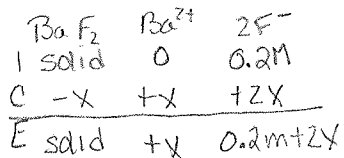 BaF₂ Ba²⁺ 2F⁻
I solid 0 0.2M
C -x +x +2x
E solid +x 0.2m+2x